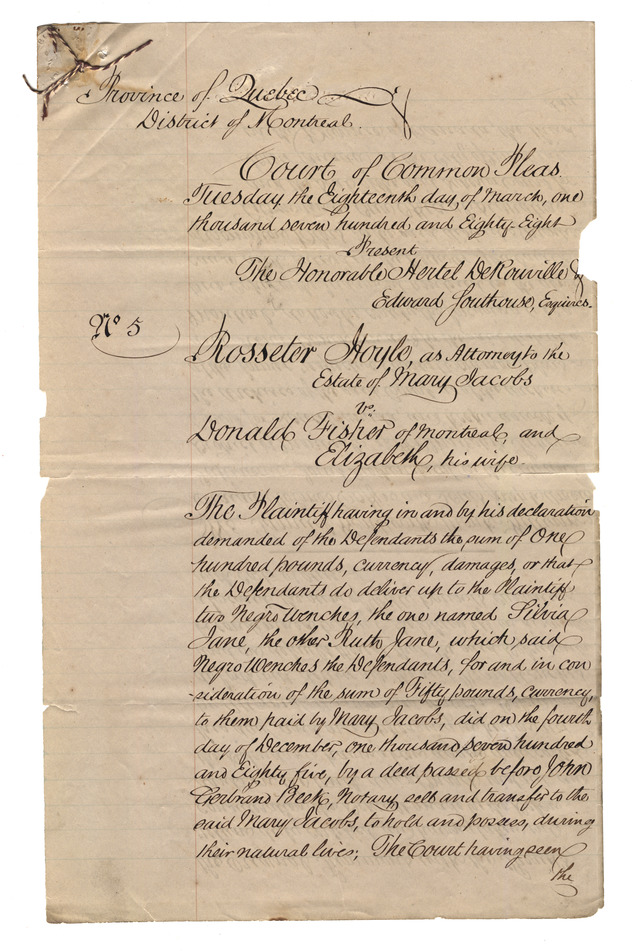 Province of Quebec
District of Montreal.
Court of Common Pleas.
Tuesday the Eighteenth day of March, one
thousand seven hundred and Eighty-Eight
Present
The Honorable Hertel DeRouville &
Edward Southouse, Esquires.
No 5
Rosseter Hoyle, as Attorney to the
Estate of Mary Jacobs
vs:
Donald Fisher of Montreal, and
Elizabeth, his wife.
The Plaintiff having in and by his declaration
demanded of the Defendants the sum of One
hundred pounds, currency, damages, or that
the Defendants do deliver up to the Plaintiff
two Negro Wenches, the one named Silvia
Jane, the other Ruth Jane, which said
Negro Wenches the Defendants, for and in con
-sideration of the sum of Fifty pounds, currency,
to them paid by Mary Jacobs, did on the fourth
day of December, one thousand seven hundred
and Eighty five, by a deed passed before John
Gerbrand Beek, Notary, sell and transfer to the
said Mary Jacobs, to hold and possess, during
their natural lives; The Court having seen
the